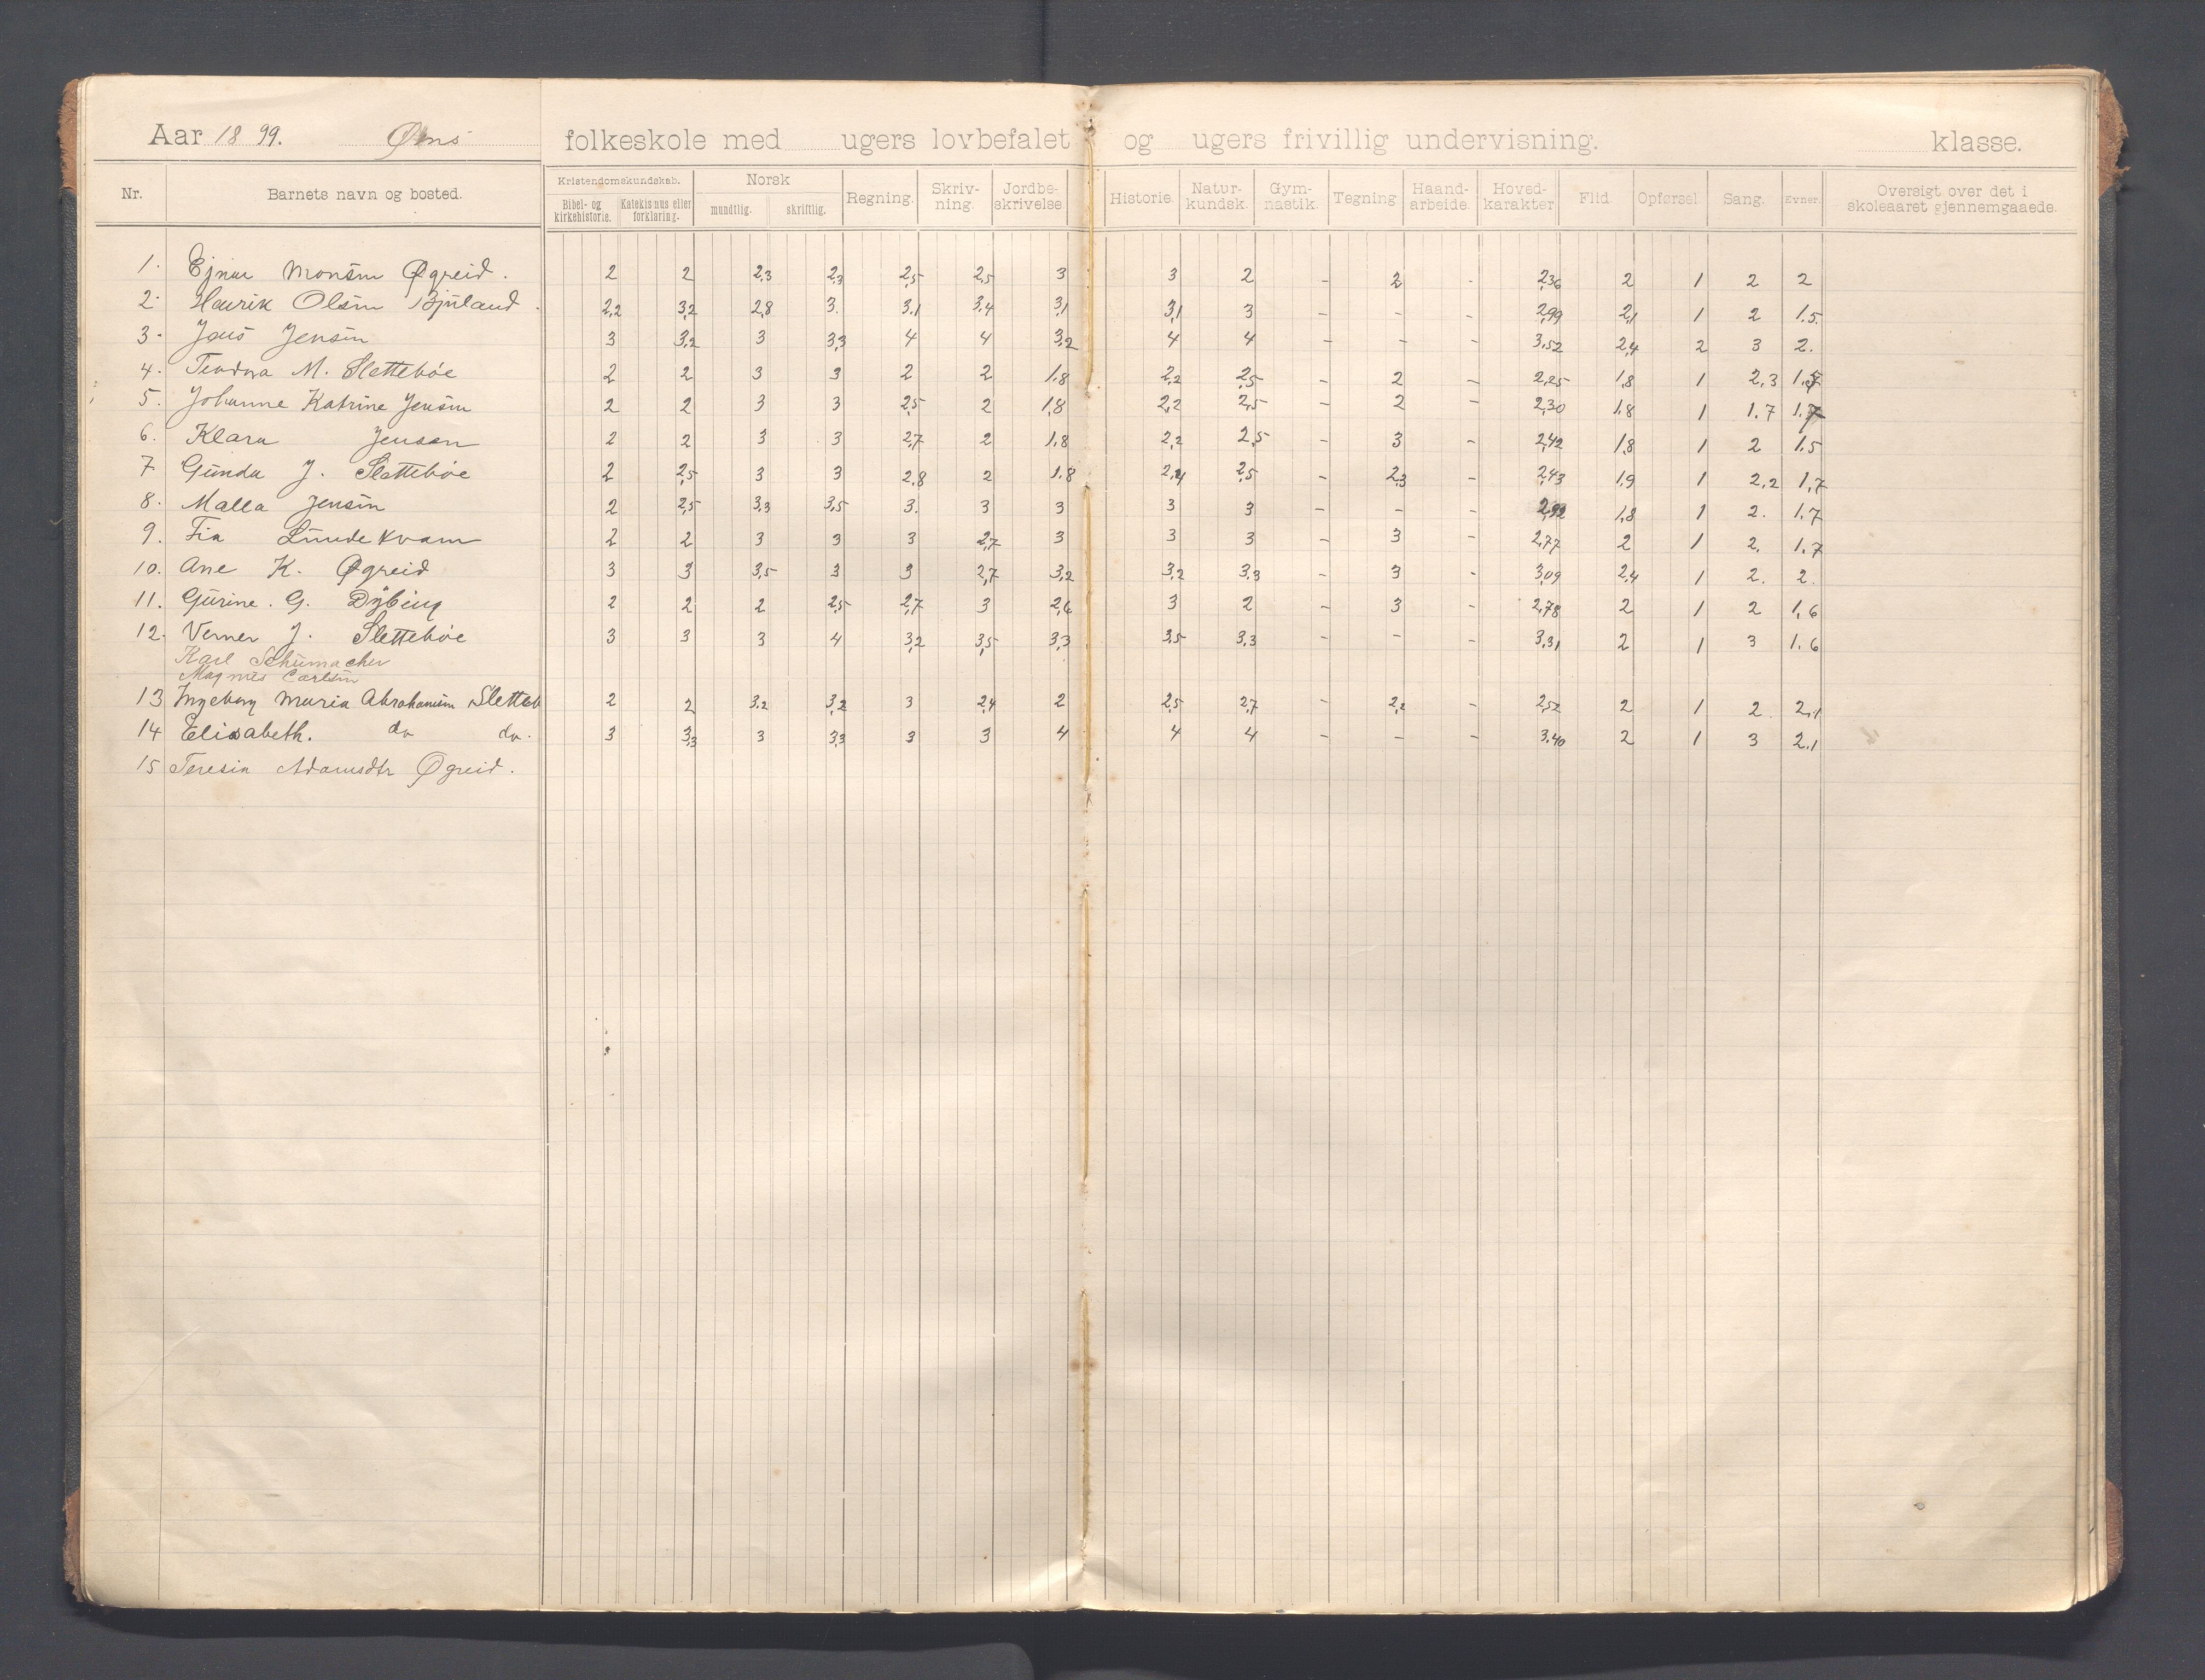 Aar 1899. folkeskole med ugers lovbefalet og ugers frivillig undervisning. klasse.
Nr. Barnets navn og bosted. Kristendomskundskab. Bibel- og kirkehistorie. Katekismus eller forklaring. Norsk mundtlig. skriftlig. Regning. Skriv-ning. Jordbe-skrivelse Historie. Natur-kundsk. Gym-nastik. Tegning Haand-arbeide. Hoved-karakter Flid Opførsel Sang. Evner. Oversigt over det i skoleaaret gjennemgaaede.
1. Ejnar Monsen Øgreid. 2 2 2,3 2,3 2,5 2,5 3 3 2 - 2 - 2,36 2 1 2 2
2. Henrik Olsen Bjuland. 2,2 3,2 2,8 3. 3.1 3,4 3,1 3,1 3 - - - 2,99 2,1 1 2 1.5.
3. Jens Jensen 3 3,2 3 3,3 4 4 3,2 4 4 - - - 3,52 2,4 2 3 2.
4. Teodora M. Slettebøe 2 2 3 3 2 2 1.8 2,2 2,5 - 2 - 2,25 1,8 1 2,3
5. Johanne Katrine Jensen 2 2 3 3 2,5 2 1,8 2,2 2,5 - 2 - 2,30 1,8 1 1.7 1.7
6. Klara Jensen 2 2 3 3 2,7 2 1,8 2,2 2,5 - 3 - 2,42 1,8 1 2 1.5
7 Gunda J. Slettebøe 2 2,5 3 3 2,8 2 1.8 2,4 2,5 - 2,3 - 2,43 1,9 1 2,2 1,7
8. Malla Jensen 2 2,5 3,3 3,5 3. 3 3 3 3 - - - 2,92 1,8 1 2. 1.7
9. Fia Lundekvam 2 2 3 3 3 2,7 3 3 3 - 3 - 2,77 2 1 2, 1.7
10. Ane K. Øgreid 3 3 3,5 3 3 2,7 3,2 3,2 3,3 - 3 - 3,09 2,4 1 2. 2.
11. Gurine. G. Dybing 2 2 2 2,5 2,7 3 2,6 3 2 - 3 - 2,78 2 1 2 1,6
12. Verner J. Slettebøe 3 3 3 4 3,2 3,5 3,3 3,5 3,3 - - - 3,31 2 1 3 1.6
Karl Schumacher
Magnus Carlsen
13 Ingeborg Maria Abrahamsen Sletteb 2 2 3,2 3,2 3 2,4 2 2,5 2,7 - 2,2 - 2,52 2 1 2. 2,1
14 Elisabeth. do do. 3 3,3 3 3,3 3 3 4 4 4 - - - 3,40 2 1 3 2.1
15 Teresia Adamsdtr Øgreid.